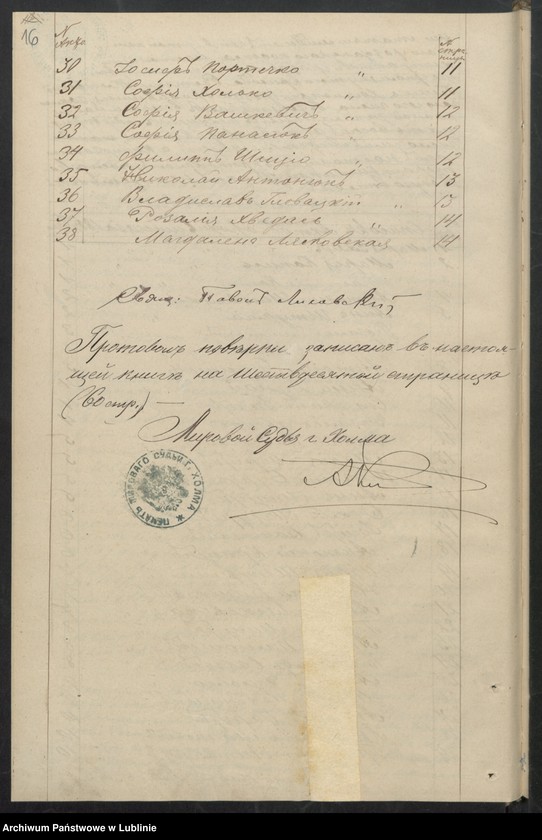 16
N Акта
N страницы
30 Іосифъ Портечко " 11
31 Софія Холоко " 11
32 Софія Вашкевичъ " 12
33 Софія Панасюкъ 12
34 Филиппъ " 12
35 Николай Антонюкъ 13
36 Владиславъ "
37 Розалія Хведась 14
38 Магдалена Лясковская 14
Протоколъ повѣрки записанъ въ настоя-
щей книгѣ на шестидесятой страницѣ
(60 стр.) —
Мировой Судья г. Холма
ПЕЧАТЬ МИРОВАГО СУДЬИ Г. ХОЛМА
Archiwum Państwowe w Lublinie